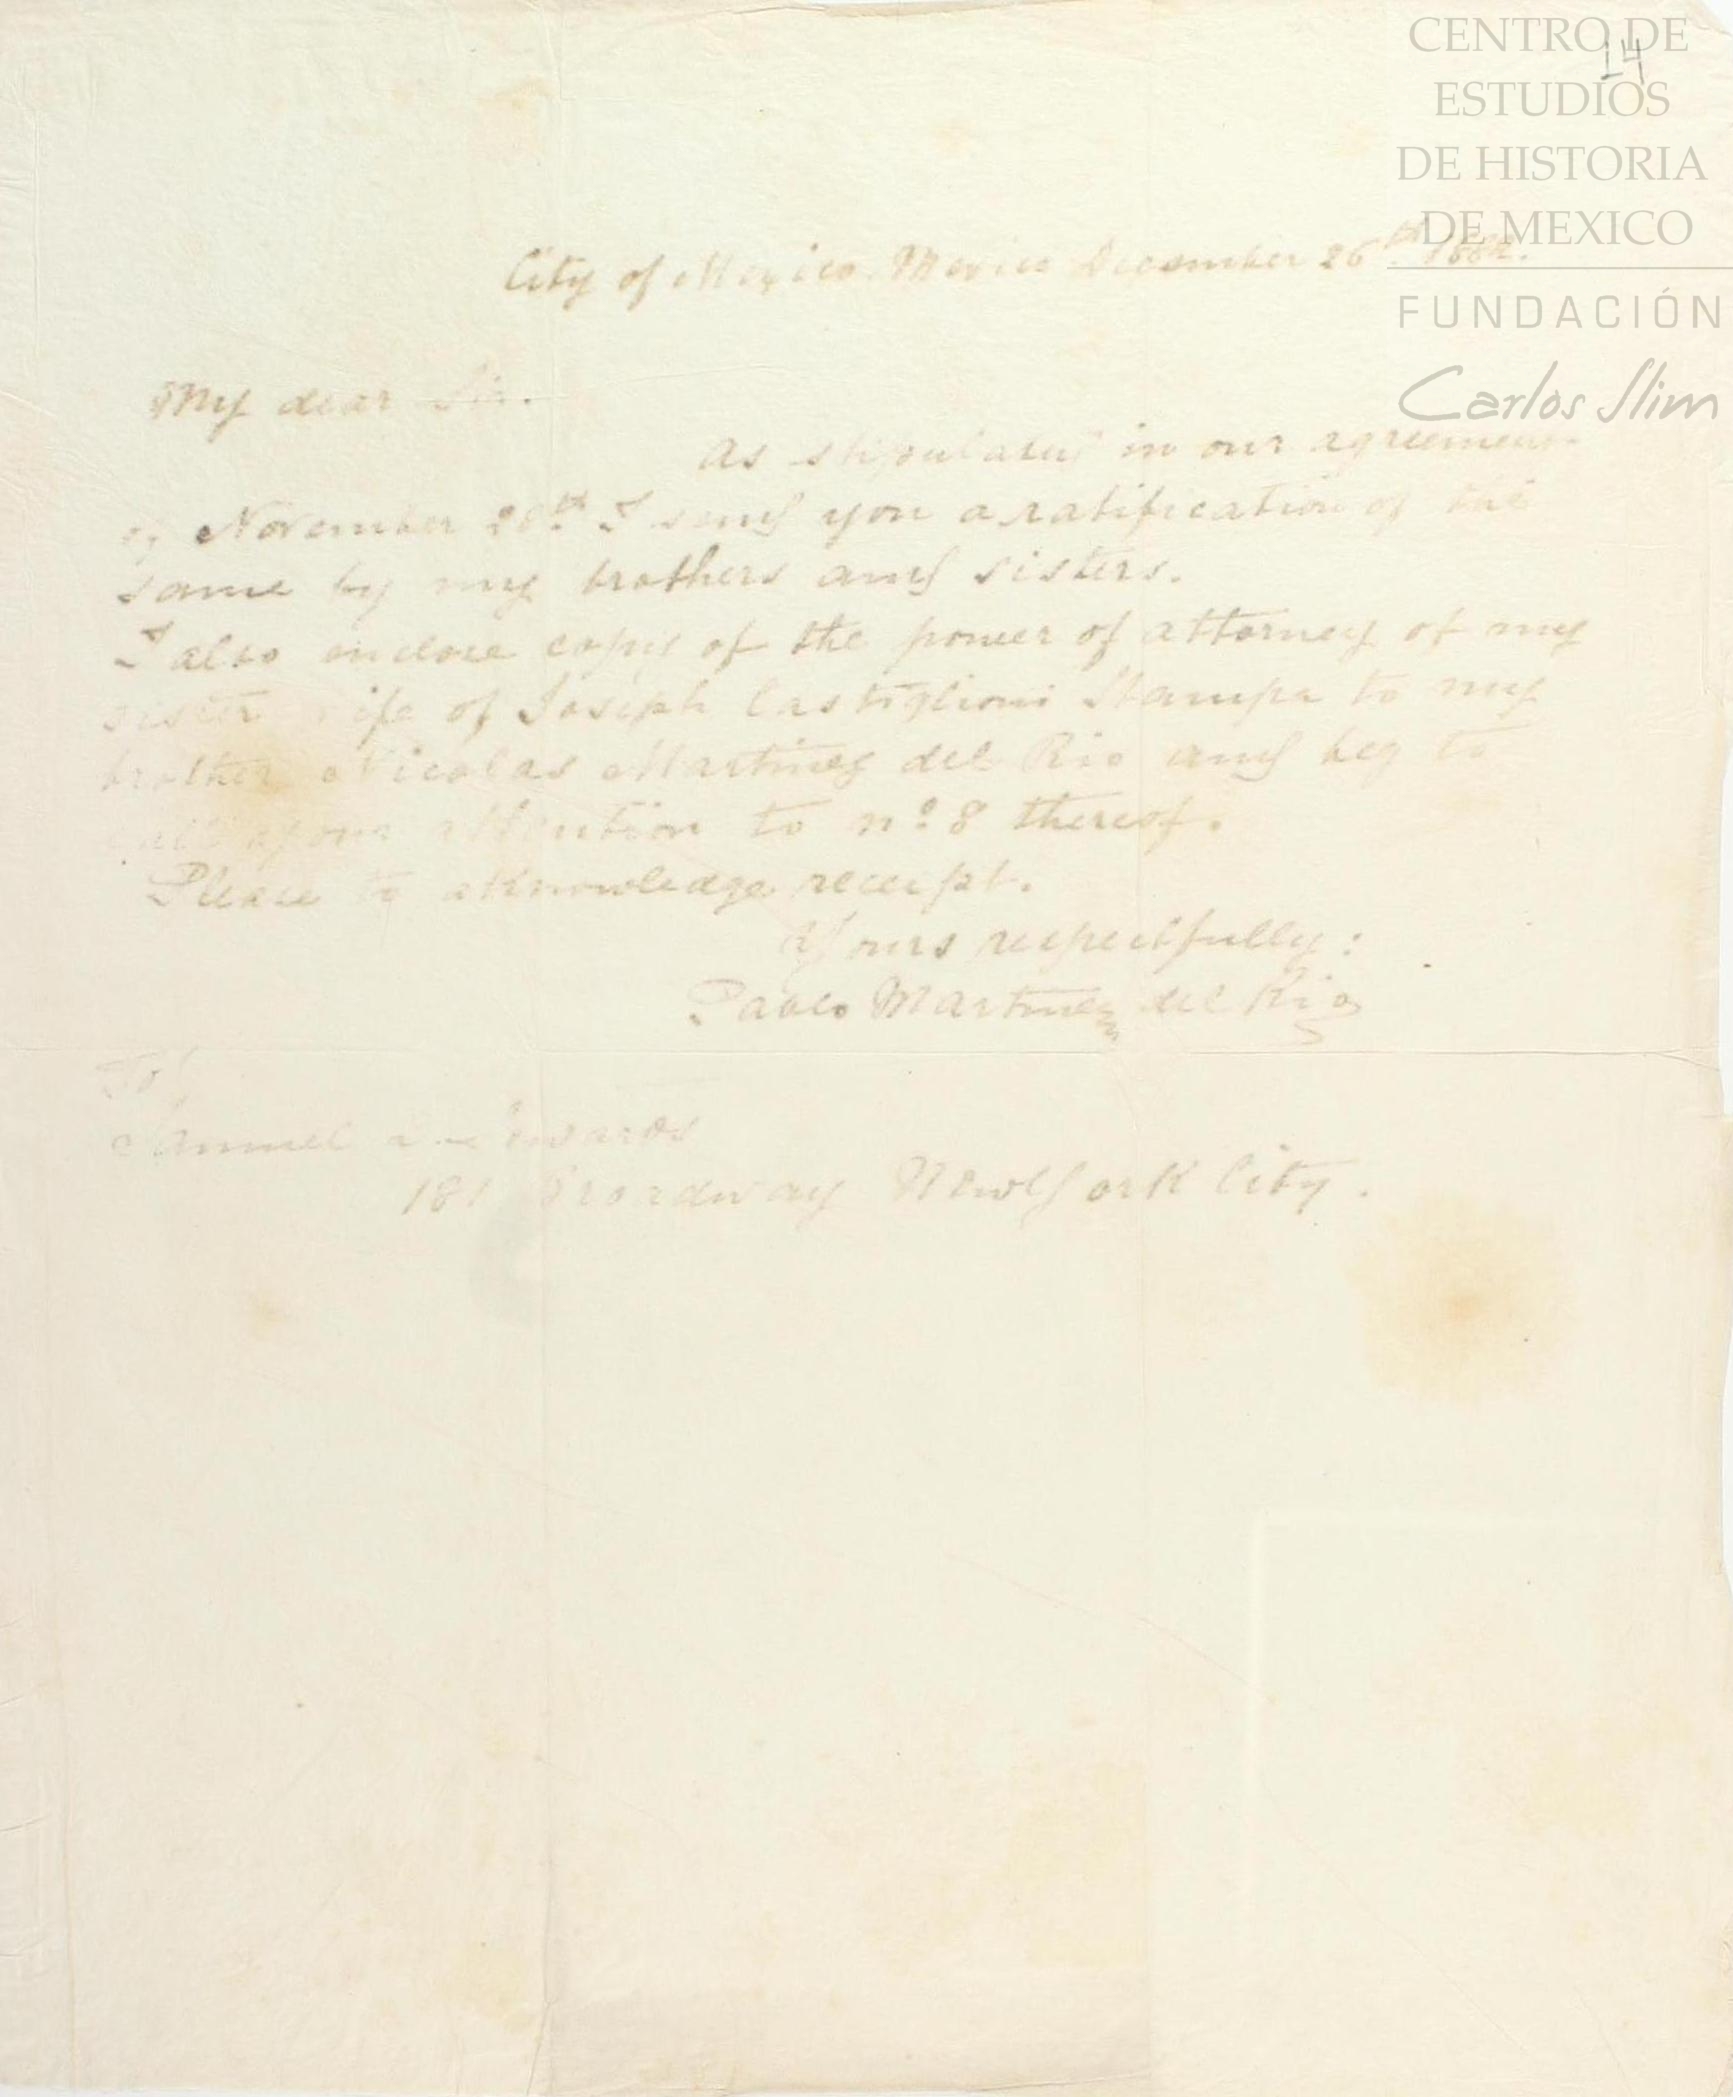 CENTRO DE
14
ESTUDIOS
DE HISTORIA
DE MEXICO
FUNDACIÓN
Carlos Slim
City of Mexico Mexico December 26th 1882.
My dear Sir.
As stipulated in our agreement
of November 28th I send you a ratification of the
same by my brothers and sisters.
I also enclose copy of the power of attorney of my
sister wife of Joseph Castiglioni Stampa to my
brother Nicolas Martinez del Rio and beg to
call your attention to nº 8 thereof.
Please to aknowledge receipt.
Yours respectfully:
Pablo Martinez del Rio
To
Samuel Edwards
181 Broadway New York City.